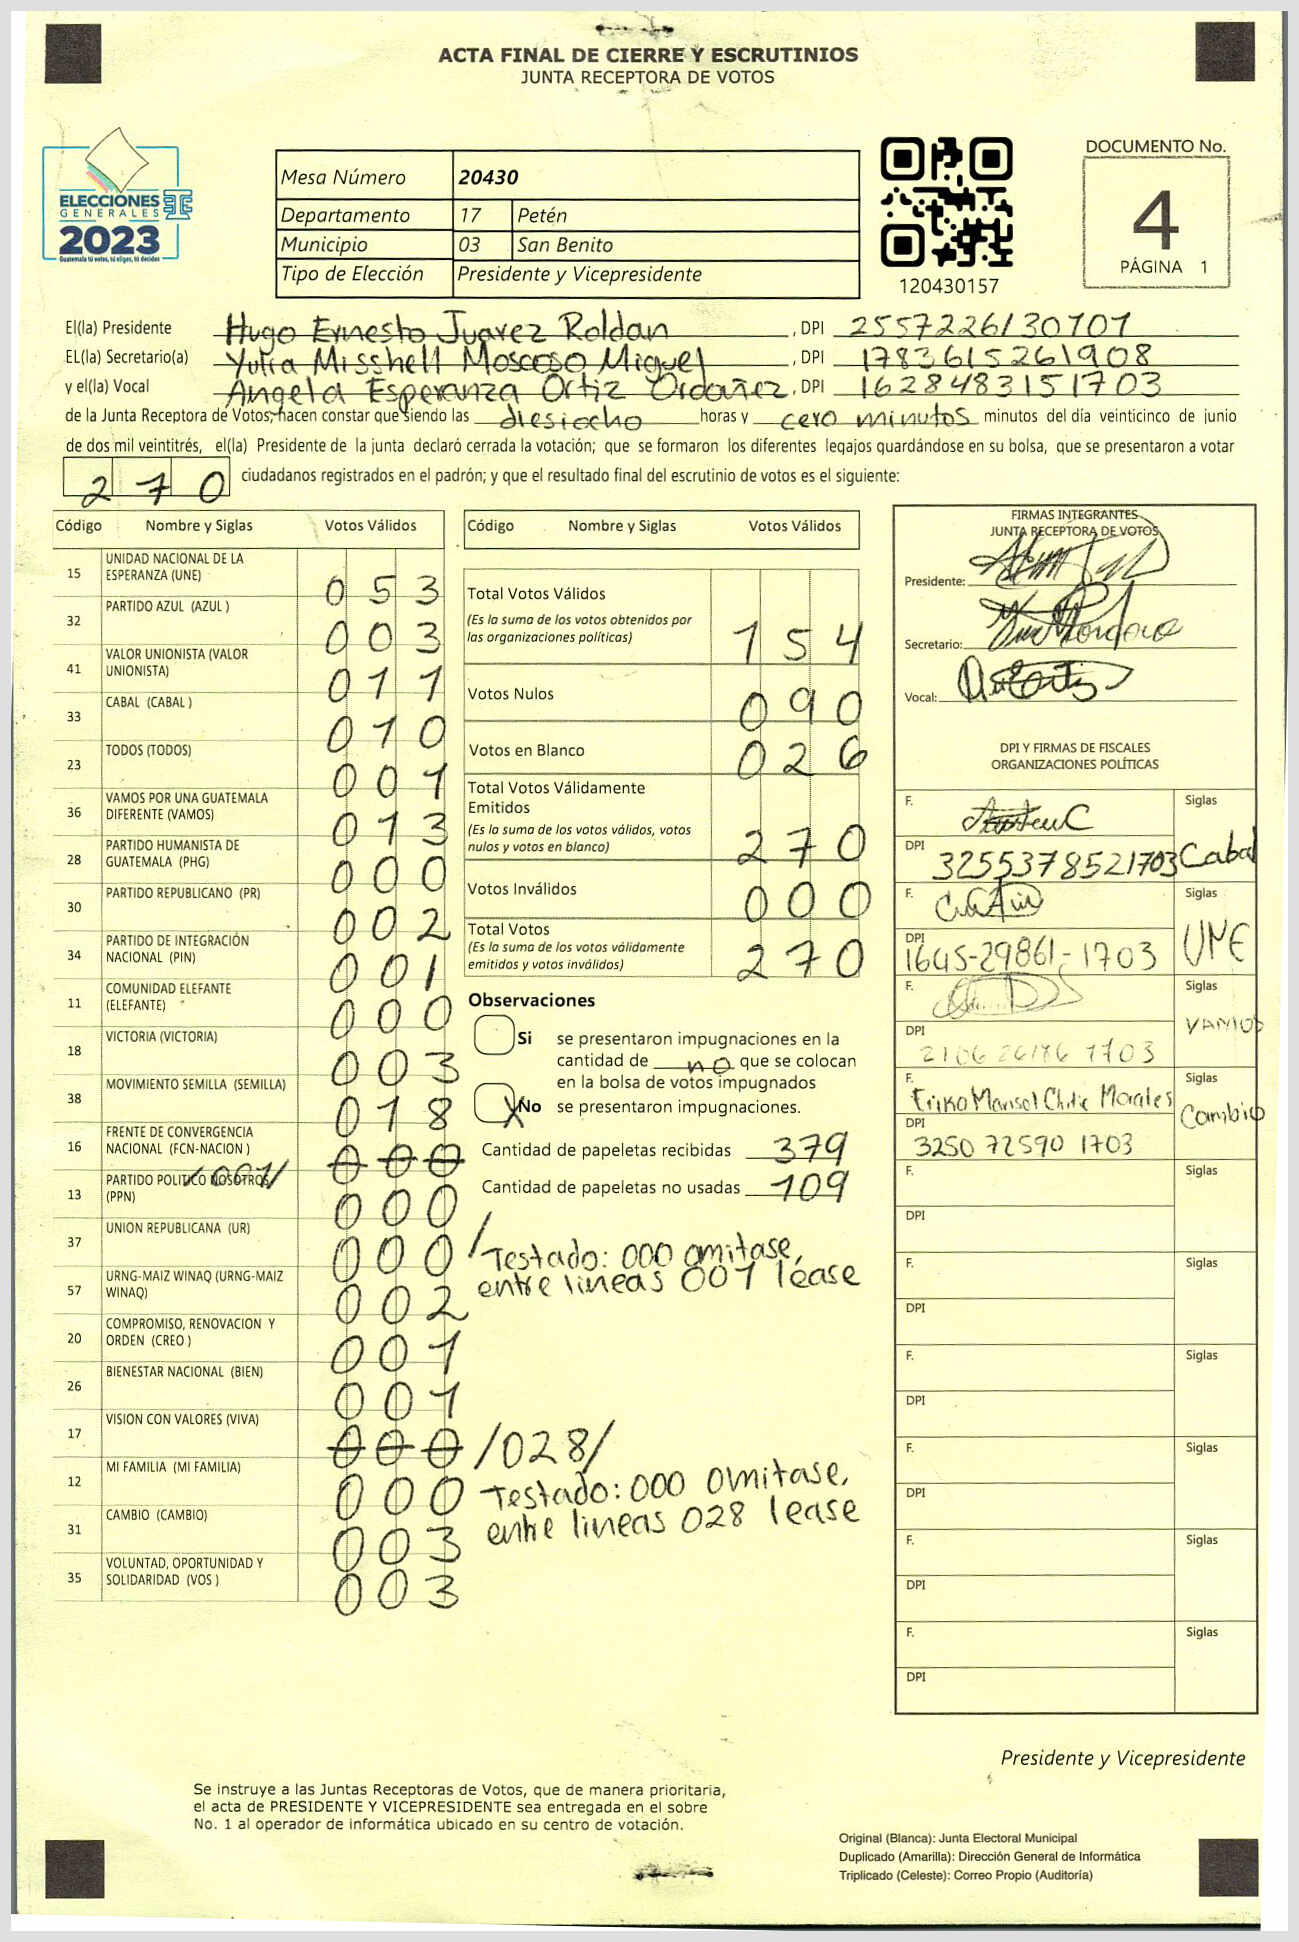 ACTA FINAL DE CIERRE Y ESCRUTINIOS
JUNTA RECEPTORA DE VOTOS
ELECCIONES
GENERALES
2023
Guatemala tú votas, tú eliges, tú decides
Mesa Número 20430
Departamento 17 Petén
Municipio 03 San Benito
Tipo de Elección Presidente y Vicepresidente
120430157
DOCUMENTO No.
4
PÁGINA 1
El(la) Presidente Hugo Ernesto Juarez Roldan, DPI 2557226130101
EL(la) Secretario(a) Yulia Misshell Moscoso Miguel, DPI 1783615261908
y el(la) Vocal Angela Esperanza Ortiz Ordoñez, DPI 1628483151703
de la Junta Receptora de Votos, hacen constar que siendo las diesiocho horas y cero minutos minutos del día veinticinco de junio
de dos mil veintitrés, el(la) Presidente de la junta declaró cerrada la votación; que se formaron los diferentes legajos quardándose en su bolsa, que se presentaron a votar
270 ciudadanos registrados en el padrón; y que el resultado final del escrutinio de votos es el siguiente:
Código Nombre y Siglas Votos Válidos
15 UNIDAD NACIONAL DE LA
ESPERANZA (UNE) 053
32 PARTIDO AZUL (AZUL ) 003
41 VALOR UNIONISTA (VALOR
UNIONISTA) 011
33 CABAL (CABAL ) 010
23 TODOS (TODOS) 001
36 VAMOS POR UNA GUATEMALA
DIFERENTE (VAMOS) 013
28 PARTIDO HUMANISTA DE
GUATEMALA (PHG) 000
30 PARTIDO REPUBLICANO (PR) 002
34 PARTIDO DE INTEGRACIÓN
NACIONAL (PIN) 001
11 COMUNIDAD ELEFANTE
(ELEFANTE) 000
18 VICTORIA (VICTORIA) 003
38 MOVIMIENTO SEMILLA (SEMILLA) 018
16 FRENTE DE CONVERGENCIA
NACIONAL (FCN-NACION ) 000
/001/
13 PARTIDO POLITICO NOSOTROS
(PPN) 000
37 UNION REPUBLICANA (UR) 000
57 URNG-MAIZ WINAQ (URNG-MAIZ
WINAQ) 002
20 COMPROMISO, RENOVACION Y
ORDEN (CREO ) 001
26 BIENESTAR NACIONAL (BIEN) 001
17 VISION CON VALORES (VIVA) 000 /028/
12 MI FAMILIA (MI FAMILIA) 000
31 CAMBIO (CAMBIO) 003
35 VOLUNTAD, OPORTUNIDAD Y
SOLIDARIDAD (VOS ) 003
Código Nombre y Siglas Votos Válidos
Total Votos Válidos
(Es la suma de los votos obtenidos por
las organizaciones políticas) 154
Votos Nulos 090
Votos en Blanco 026
Total Votos Válidamente
Emitidos
(Es la suma de los votos válidos, votos
nulos y votos en blanco) 270
Votos Inválidos 000
Total Votos
(Es la suma de los votos válidamente
emitidos y votos inválidos) 270
Observaciones
Si se presentaron impugnaciones en la
cantidad de no que se colocan
en la bolsa de votos impugnados
X No se presentaron impugnaciones.
Cantidad de papeletas recibidas 379
Cantidad de papeletas no usadas 109
/Testado: 000 omitase,
entre lineas 001 lease
Testado: 000 omitase,
entre lineas 028 lease
FIRMAS INTEGRANTES
JUNTA RECEPTORA DE VOTOS
Presidente:
Secretario:
Vocal:
DPI Y FIRMAS DE FISCALES
ORGANIZACIONES POLÍTICAS
F. Siglas
DPI 3255378521703 Cabal
F. Siglas
DPI 1645-29861-1703 UNE
F. Siglas
DPI VAMOS
F. Siglas
DPI 3250 72590 1703 Cambio
F. Siglas
DPI
F. Siglas
DPI
F. Siglas
DPI
F. Siglas
DPI
F. Siglas
DPI
F. Siglas
DPI
Presidente y Vicepresidente
Se instruye a las Juntas Receptoras de Votos, que de manera prioritaria,
el acta de PRESIDENTE Y VICEPRESIDENTE sea entregada en el sobre
No. 1 al operador de informática ubicado en su centro de votación.
Original (Blanca): Junta Electoral Municipal
Duplicado (Amarilla): Dirección General de Informática
Triplicado (Celeste): Correo Propio (Auditoría)